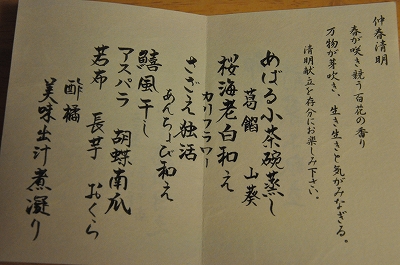 仲春清明
春が咲き競う百花の香り
万物が芽吹き、生き生きと気がみなぎる。
清明献立を存分にお楽しみ下さい。
めばる小茶碗蒸し
葛餡 山葵
桜海老白和え
カリフラワー
さざえ独活
あんちょび和え
鱚風干し
アスパラ 胡蝶南瓜
若布 長芋 おくら
酢橘
美味出汁煮凝り